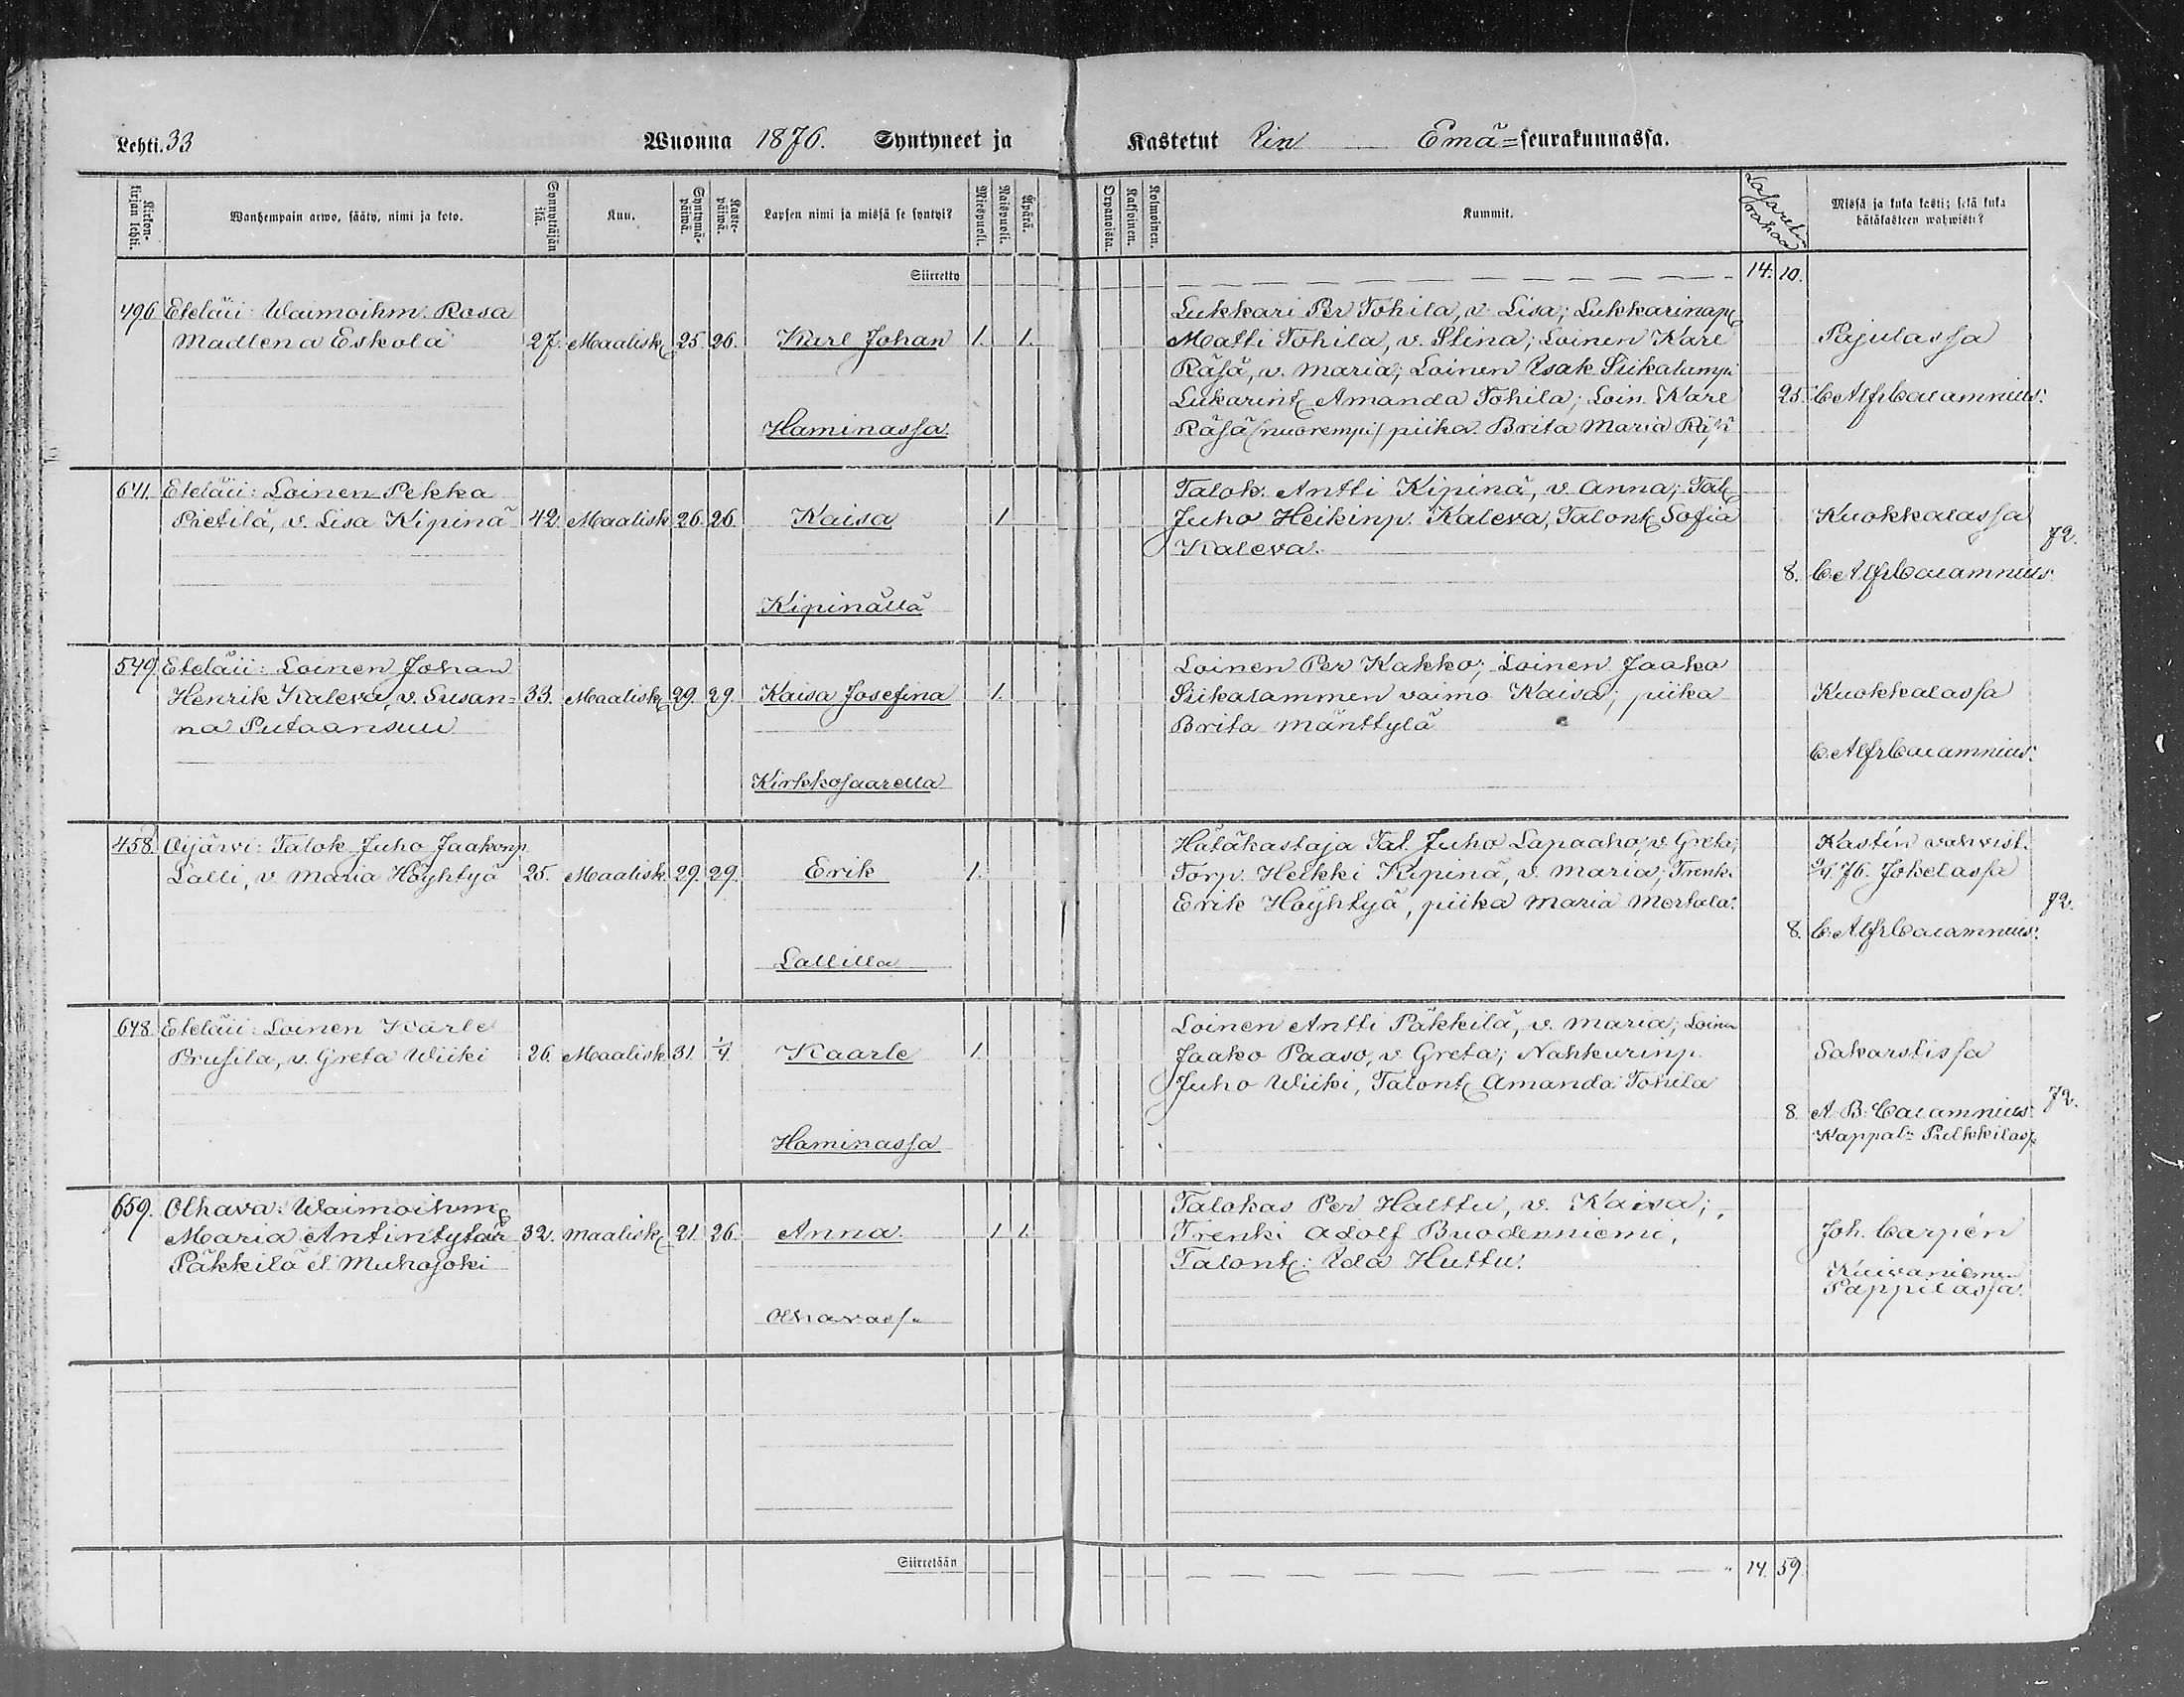 Lehti. 33 Wuonna 1876. Syntyneet ja Kastetut Iin Emä=seurakunnassa.
Kirkonkirjan lehti.
Wanhempain arwo, sääty, nimi ja koto.
Synnyttäjän ikä.
Kuu.
Syntymä-päiwä.
Kaste-päiwä.
Lapsen nimi ja missä se syntyi?
Miespuoli.
Naispuoli.
Äpärä.
Orpanoista.
Kaksoinen.
Kolmoinen.
Kummit.
Lasaretin rahaa
Missä ja kuka kasti; sekä kuka hätäkasteen wahwisti?
Siirretty 14. 10.
496. Eteläii: Waimoihm. Rosa
Madlena Eskola 27. Maalisk. 25. 26. Karl Johan 1. 1.
Haminassa
Lukkari Per Tohila, v. Lisa; Lukkarinap.
Matti Tohila, v. Stina; Loinen Kare
Räsä, v. Maria; Loinen Isak Siikalampi
Lukarint. Amanda Tohila; Loin. Kare
Räsä (nuorempi) piika Brita Maria Räsä
Pajulassa
25. C Alfr Calamnius.
641. Eteläii: Loinen Pekka
Pietilä, v. Lisa Kipinä 42. Maalisk. 26. 26. Kaisa 1
Kipinällä
Talok. Antti Kipinä, v. Anna; Tal.
Juho Heikinp. Kaleva, Talont. Sofia
Kaleva.
Kuokkalassa
72.
8. C. Alfr Calamnius.
549. Eteläii: Loinen Johan
Henrik Kaleva, v. Susan=
na Putaansuu 33. Maalisk. 29. 29. Kaisa Josefina 1.
Kirkkosaarella
Loinen Per Kakko; Loinen Jaako
Siikalammen vaimo Kaisa; piika
Brita Mänttylä
Kuokkalassa
C. Alfr Calamnius.
458. Oijärvi: Talok. Juho Jaakonp.
Lalli, v. Maria Höyhtyä 25. Maalisk. 29. 29. Erik 1.
Lallilla
Hätäkastaja Tal. Juho Lapaaho, v. Greta;
Torp. Heikki Kipinä, v. Maria; Trenk.
Erik Höyhtyä, piika Maria Mertala.
Kastén vahvist.
2/4 76. Jokelassa
72.
8. C. Alfr Calamnius.
648. Eteläii: Loinen Karle
Prusila, v. Greta Wiiki 26. Maalisk. 31. 1/4 Kaarle 1.
Haminassa
Loinen Antti Päkkilä, v. Maria; Loinen
Jaako Paaso, v. Greta; Nahkurinp.
Juho Wiiki, Talont. Amanda Tohila
Sakarstissa
72.
8 A. B. Calamnius
Kappal: Pulkkilas.
659. Olhava: Waimoihm.
Maria Antintytär 32. Maalisk. 21. 26. Anna 1 1.
Päkkilä el. Muhojoki
Olhavassa
Talokas Per Halttu, v. Kaisa;
Trenki Adolf Buodenniemi,
Talont: Ida Huttu.
Joh. Carpén
Kuivaniemen
Pappilassa.
Siirretään 14. 59